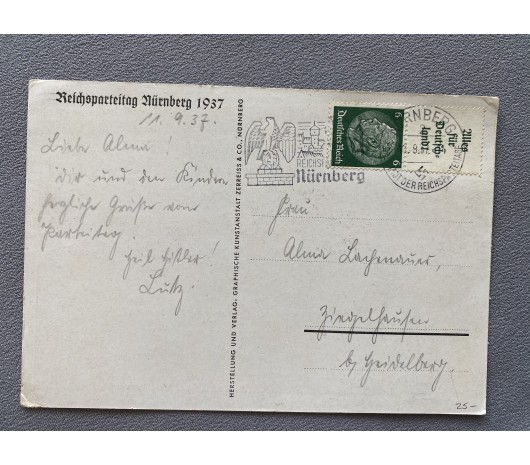 Reichsparteitag Nürnberg 1937
11. 9. 37.
Liebe Alma
Dir und den Kindern
herzliche Grüße vom
Parteitag.
Heil Hitler!
Lutz.
HERSTELLUNG UND VERLAG: GRAPHISCHE KUNSTANSTALT ZERREISS & CO., NÜRNBERG
REICHS
Nürnberg
Deutsches Reich
6
6
Alles
für
Deutschland
RNBERG
9.
DER REICHSPARTEITAGE
Frau
Alma Lachenauer,
Ziegelhausen
b/ Heidelberg.
25-